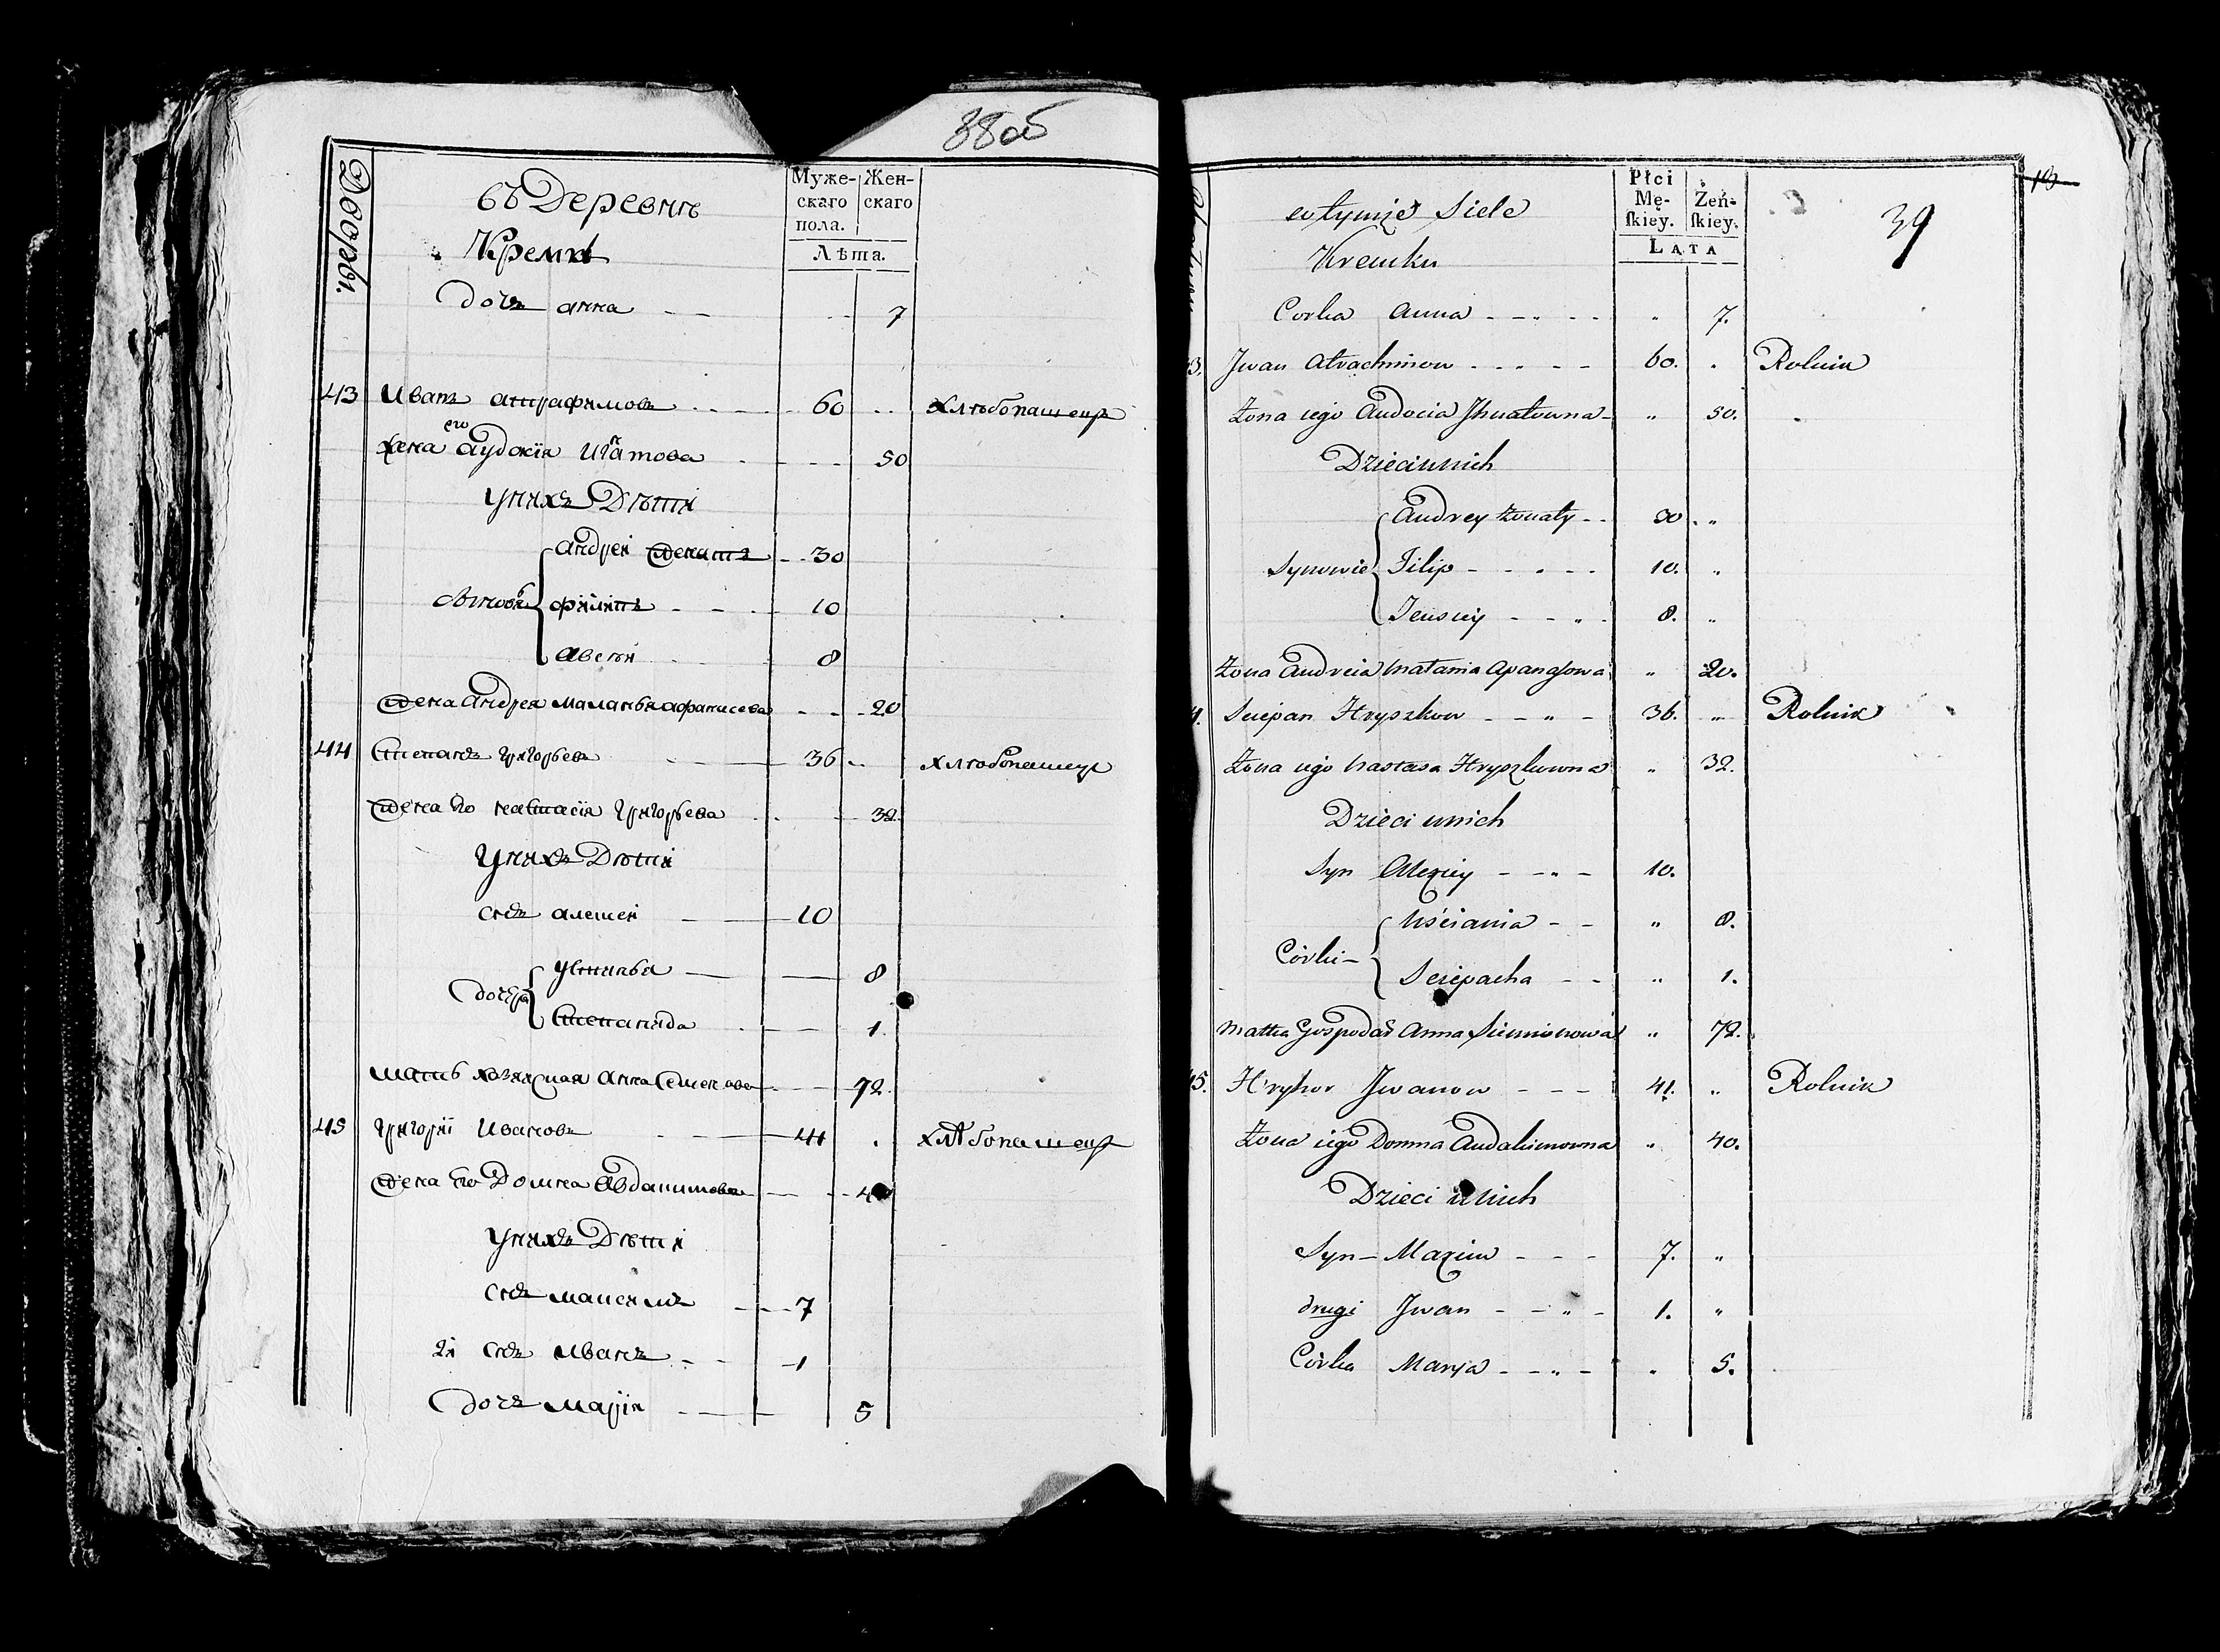 38об
Дворы.
въ Деревнѣ
Кремкѣ
Муже-скаго пола. Жен-скаго
Лѣта.
дочь анна 7
43 Иванъ атрафимовъ 60 хлѣбопашецъ
жена его аудокія Игнатова 50
У нихъ Дѣти
андреи женатъ 30
сыновя филипъ 10
авсѣи 8
жена андрея маланья афанасева 20
44 Степанъ григорьевъ 36 хлѣбопашецъ
жена его настасія григорьева 32
У нихъ Дѣти
сынъ алексеи 10
устинья 8
дочери
Степанида 1
мать хозяиская анна Семенова 72
45 григории Ивановъ 41 хлѣбопашецъ
жена его Домна авдакимова 40
У нихъ Дѣти
сынъ максимъ 7
2й сынъ иванъ 1
дочь марія 5
w tymże Siele
Kremku
Płci Mę-ſkiey. Żeń-ſkiey.
LATA
39
19
Corka Anna " 7.
3. Jwan Atrachimow 60. Rolnik
Żona iego Audocia Jhnatowna " 50.
Dzieci u nich
Andrey żonaty 30. "
Synowie Filip 10. "
Jewsiey 8. "
Żona Andreia Małania Apanasowa " 20.
4. Sciepan Hryszkow 36. " Rolnik
Żona iego Nastasa Hryszkowna " 32.
Dzieci u nich
Syn Alexiey 10.
Uściania " 8.
Córki
Sciepacha " 1.
Matka Gospodar Anna Siemionowa " 72.
45. Hryhor Jwanow 41. " Rolnik
Żona iego Domna Audakimowna " 40.
Dzieci u nich
Syn Maxim 7. "
drugi Jwan 1. "
Córka Marya " 5.